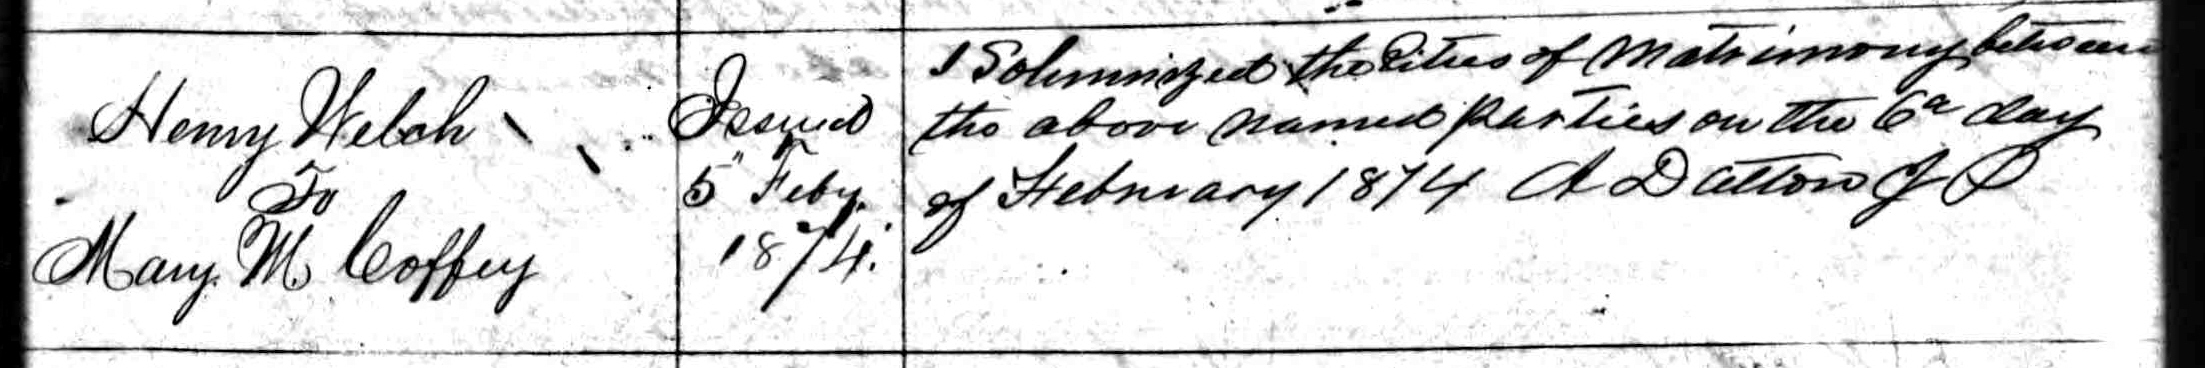 Henry Welch
To
Mary. M. Coffey
Issued
5" Feby.
1874.
I Solemnized the Rites of Matrimony between
the above named parties on the 6th day
of February 1874 A Dutton J P